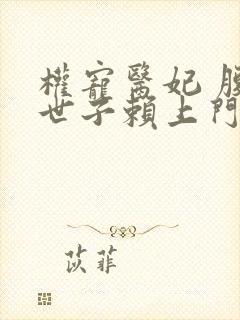 權寵醫妃
世子賴上門
苡菲